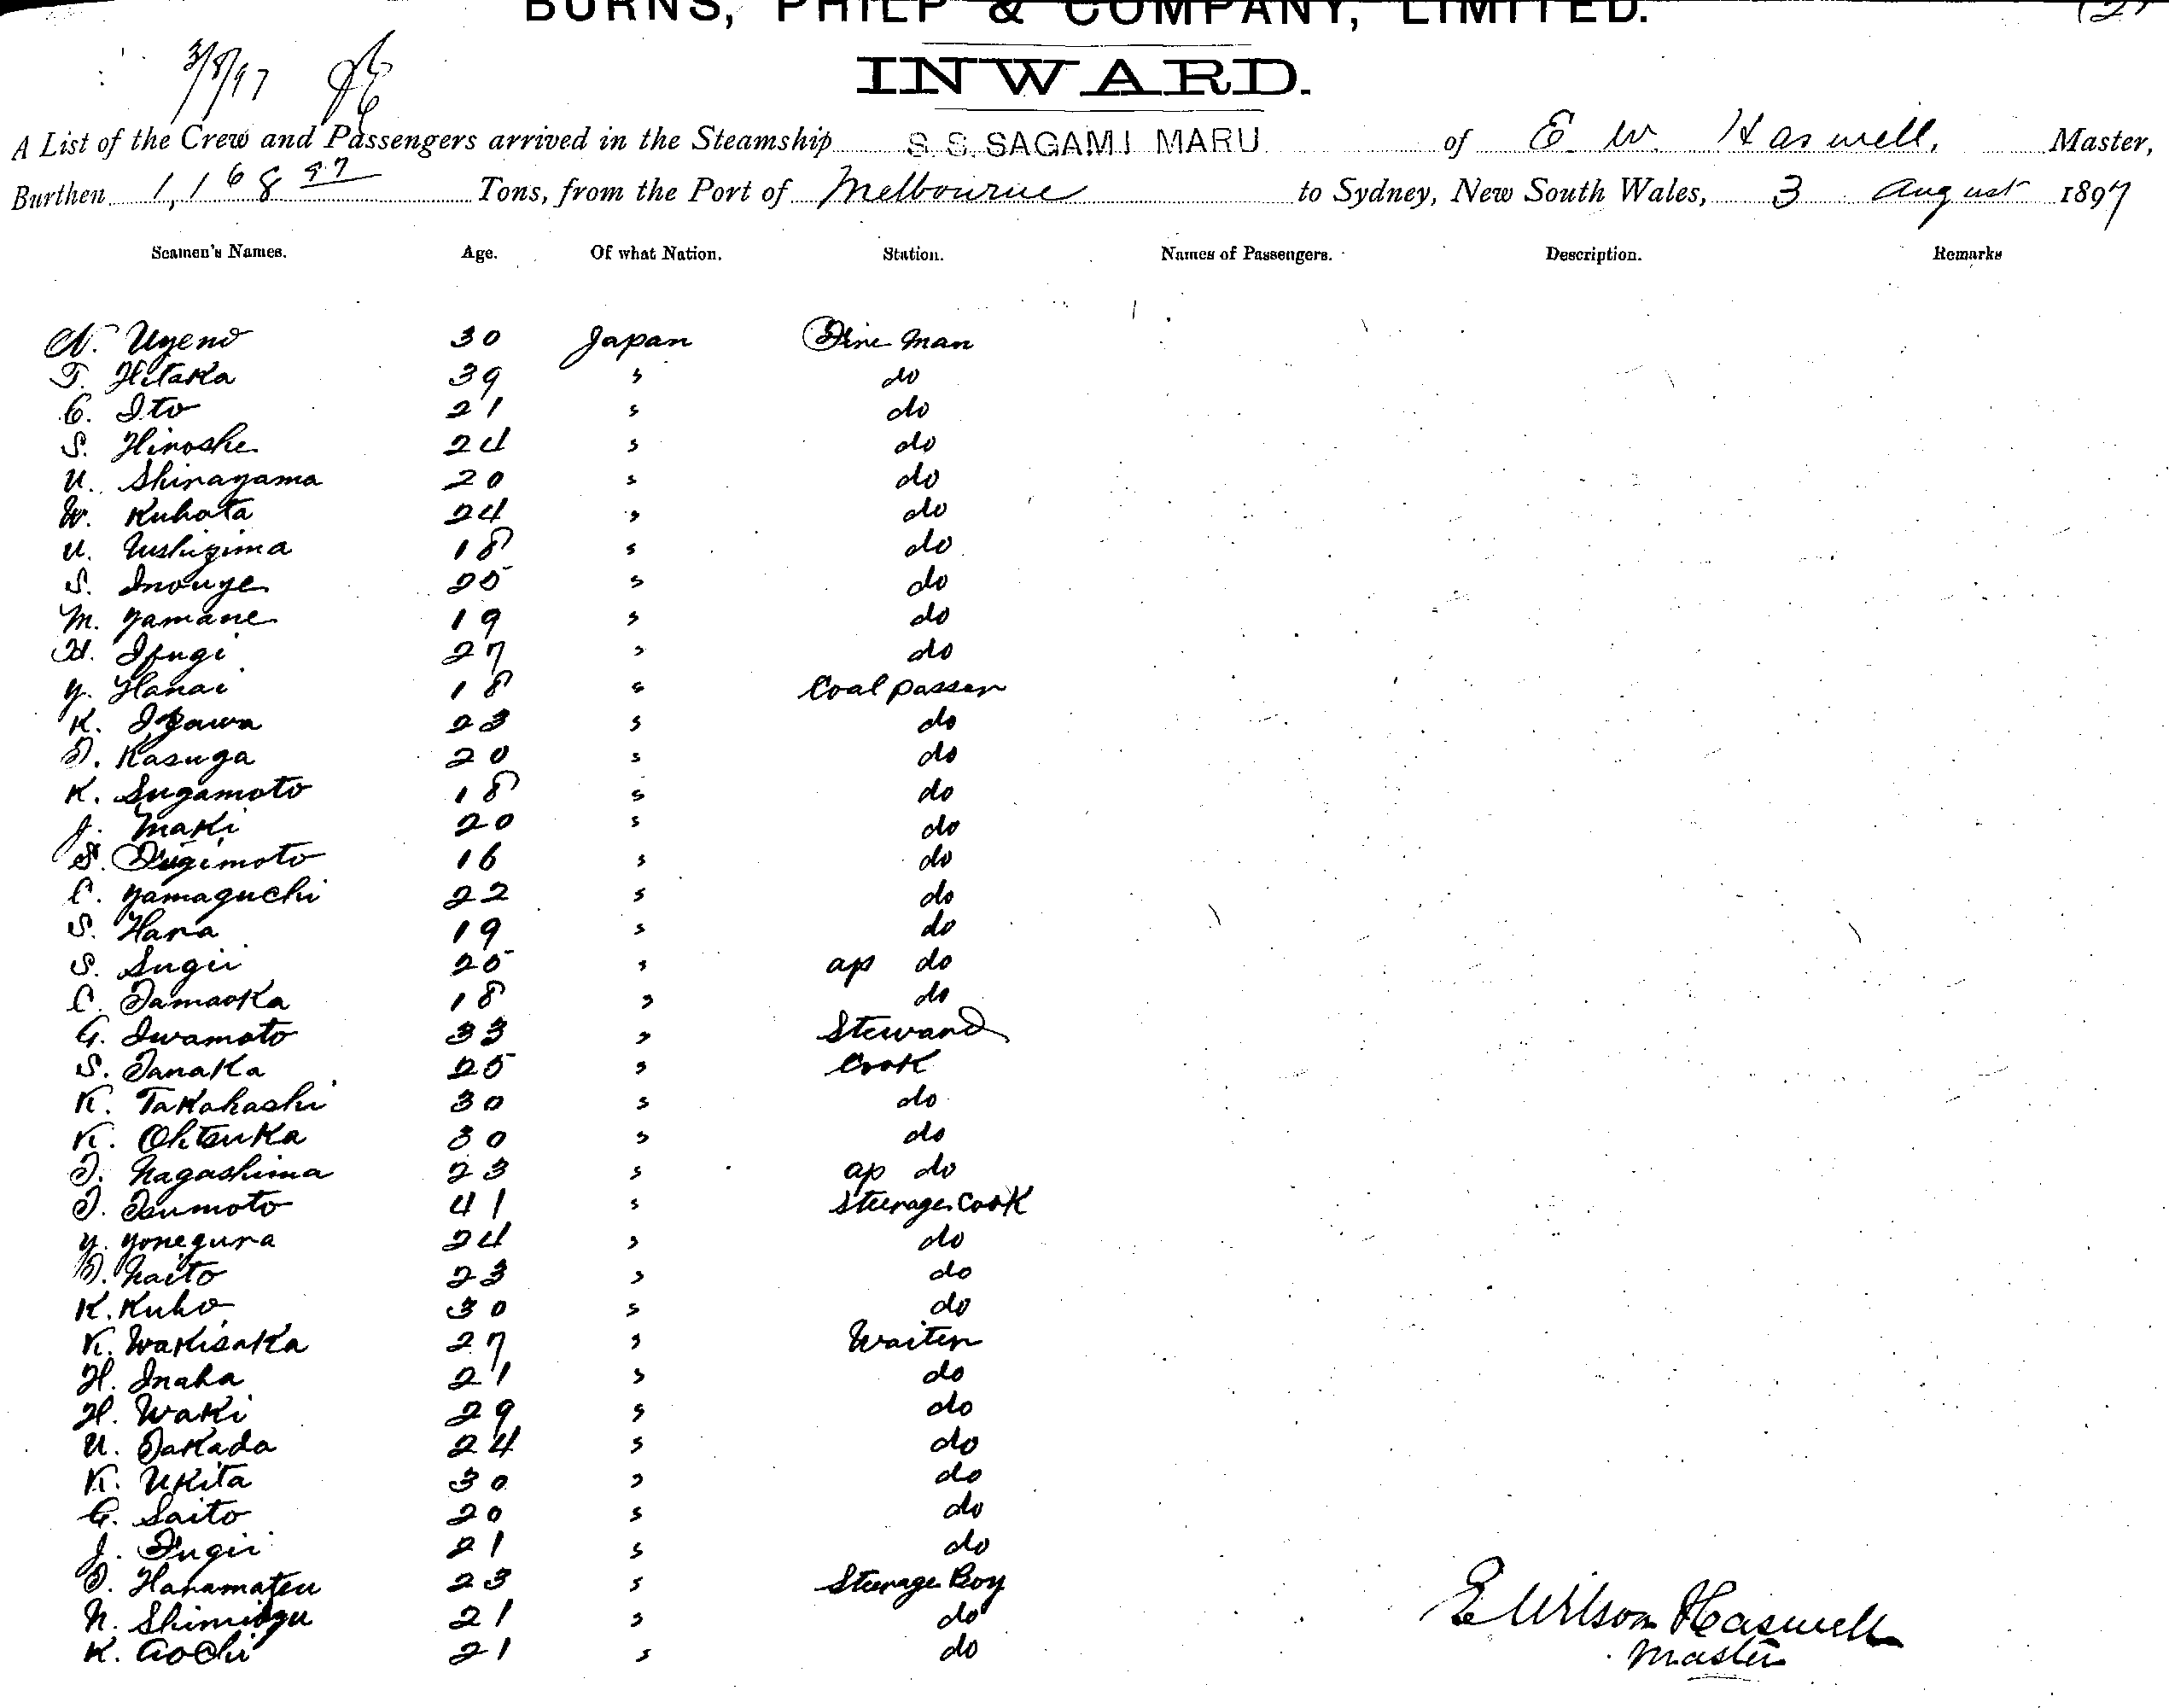 BURNS, PHILP & COMPANY, LIMITED. (2)
INWARD.
3/8/97
A List of the Crew and Passengers arrived in the Steamship S.S. SAGAMI MARU of E. W. Haswell, Master,
Burthen 1,168 97 Tons, from the Port of Melbourne to Sydney, New South Wales, 3 August 1897
Seamen's Names. Age. Of what Nation. Station. Names of Passengers. Description. Remarks
N. Uyeno 30 Japan Fire man
T. Hitaka 39 " do
C. Ito 21 " do
S. Hiroshe 24 " do
U. Shirayama 20 " do
W. Kubota 24 " do
U. Ushizima 18 " do
S. Inouye 25 " do
M. Yamane 19 " do
H. Ifugi 27 " do
Y. Hanai 18 " Coal passer
K. Igawa 23 " do
T. Kasuga 20 " do
K. Sugamoto 18 " do
J. Maki 20 " do
S. Fugimoto 16 " do
C. Yamaguchi 22 " do
S. Hara 19 " do
S. Sugii 25 " ap do
C. Tamaoka 18 " do
G. Iwamoto 33 " Steward
S. Tanaka 25 " Cook
K. Takahashi 30 " do
K. Ohtsuka 30 " do
T. Nagashima 23 " ap do
T. Tsumoto 41 " Steerage Cook
Y. Yonegura 24 " do
T. Naito 23 " do
K. Kubo 30 " do
K. Wakisaka 27 " Waiter
H. Inaba 21 " do
H. Waki 29 " do
U. Takada 24 " do
K. Ukita 30 " do
G. Saito 20 " do
J. Fugii 21 " do
T. Haramatsu 23 " Steerage Boy
N. Shimidzu 21 " do
K. Aochi 21 " do
E Wilson Haswell
Master